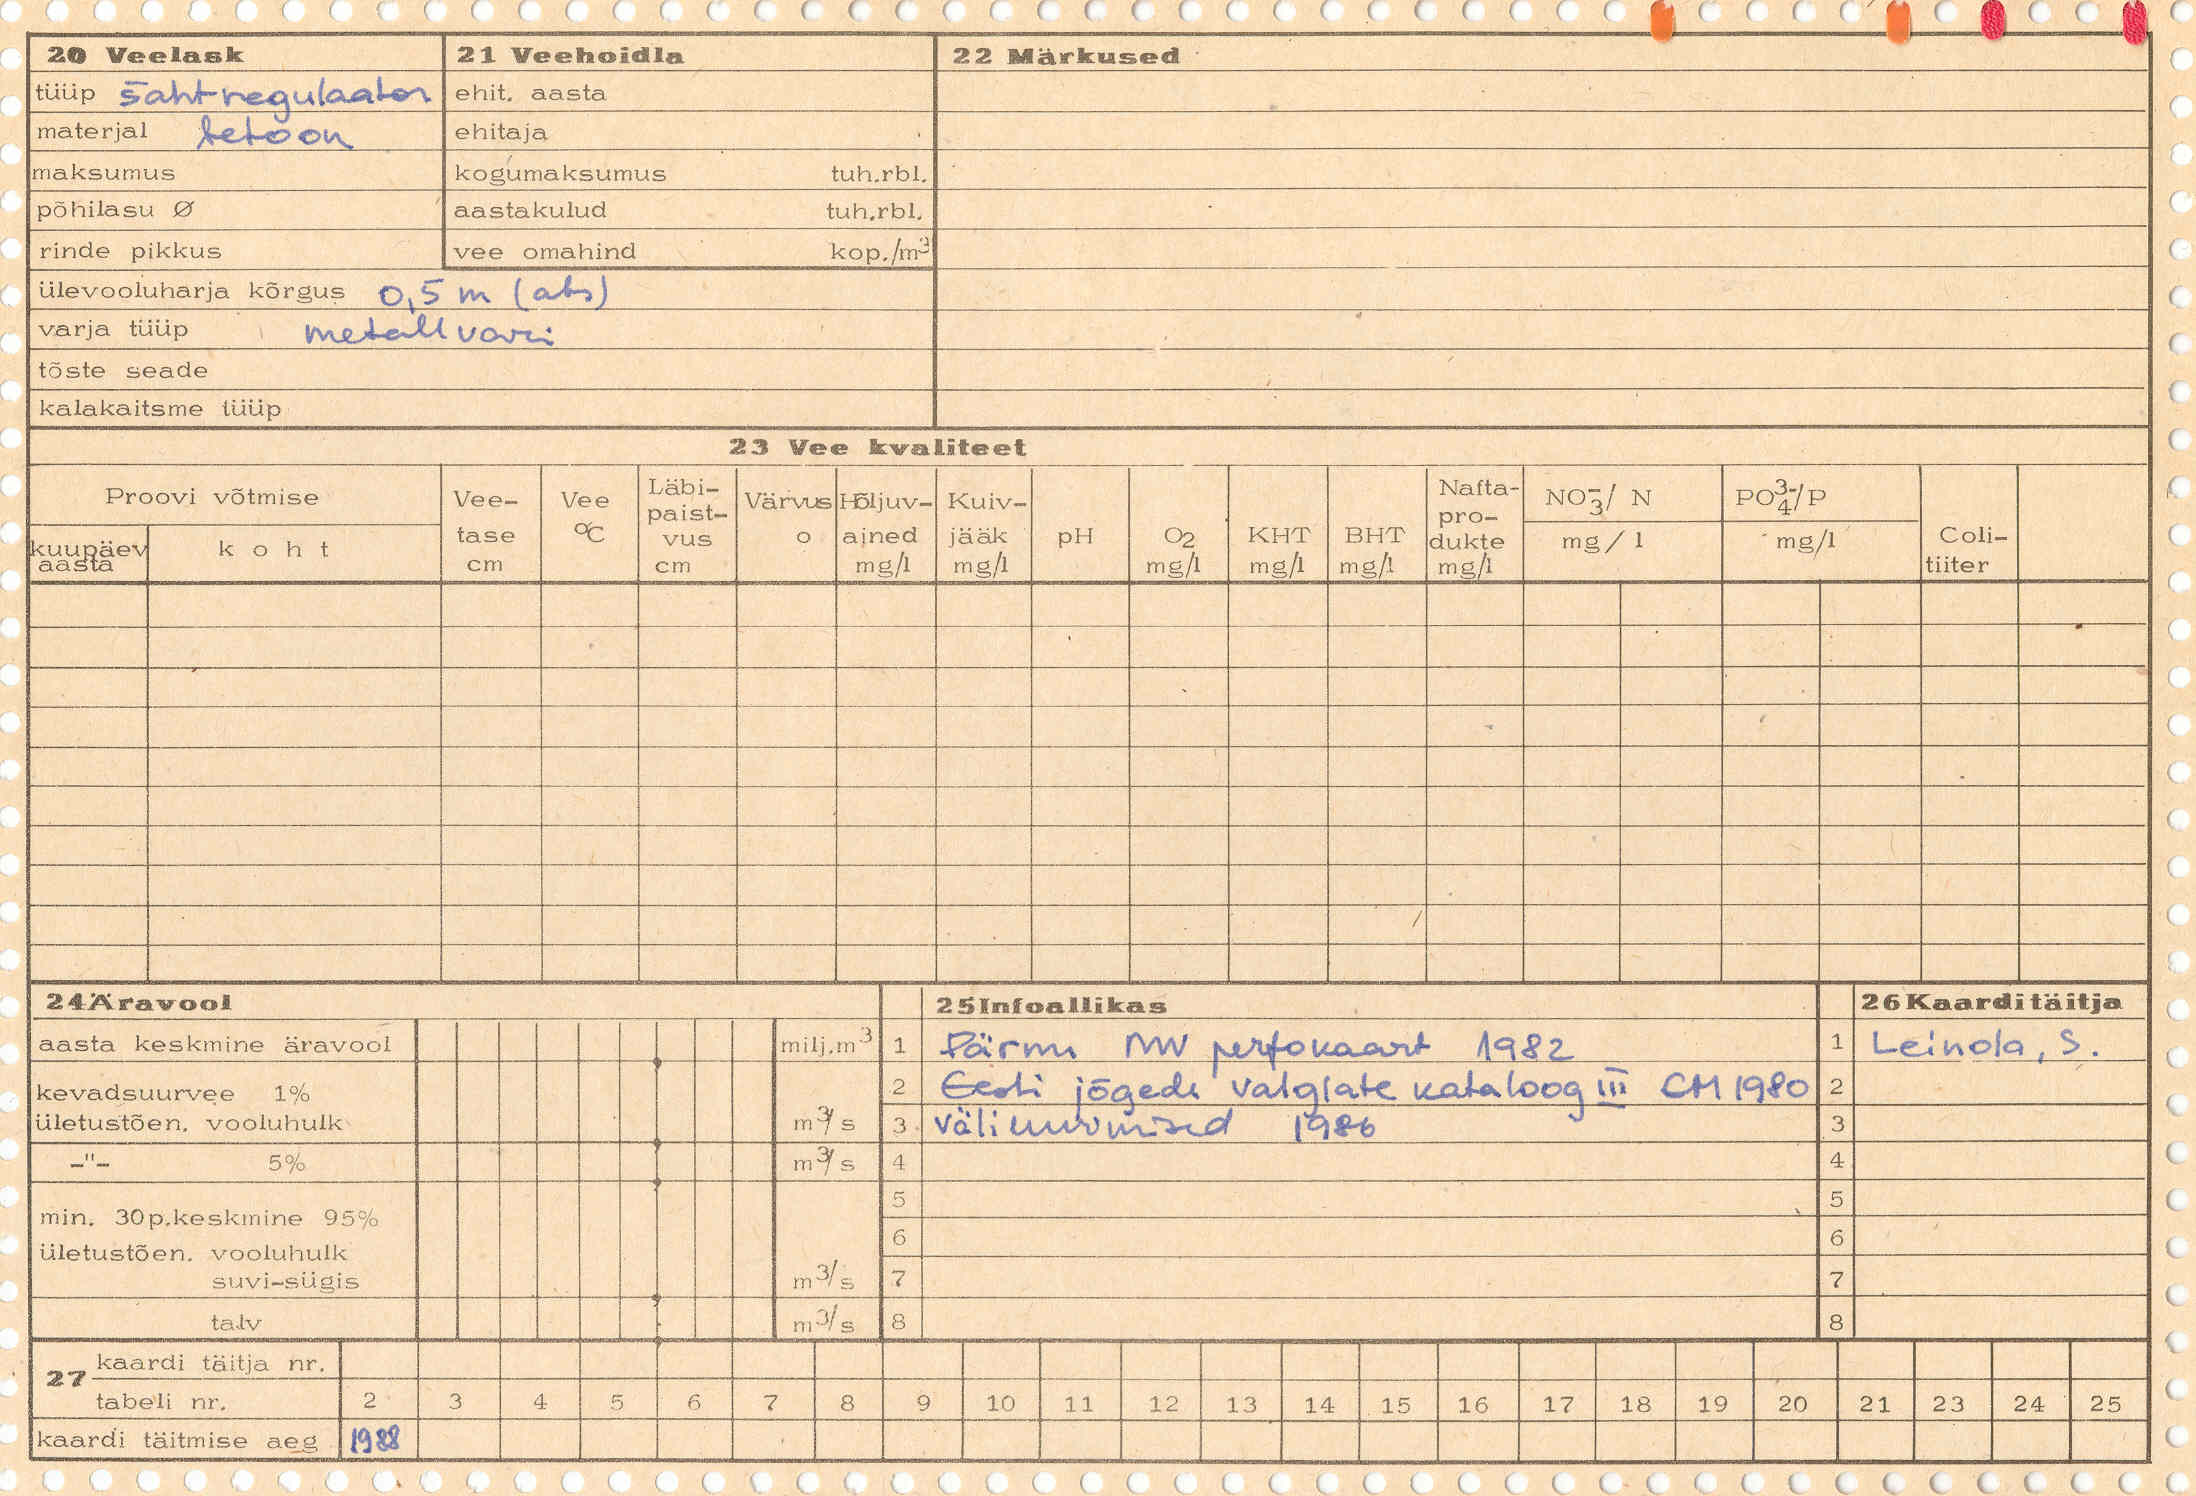 20 Veelask
tüüp šahtregulaator
materjal betoon
maksumus
põhilasu Ø
rinde pikkus
ülevooluharja kõrgus 0,5 m (abs)
varja tüüp metallvari
tõste seade
kalakaitsme tüüp
21 Veehoidla
ehit. aasta
ehitaja
kogumaksumus tuh.rbl.
aastakulud tuh.rbl.
vee omahind kop./m³
22 Märkused
23 Vee kvaliteet
Proovi võtmise
kuupäev aasta
koht
Vee-tase cm
Vee °C
Läbi-paist-vus cm
Värvus o
Hõljuv-ained mg/l
Kuiv-jääk mg/l
pH
O2 mg/l
KHT mg/l
BHT mg/l
Nafta-pro-dukte mg/l
NO₃⁻/ N mg/l
PO₄³⁻/P mg/l
Coli-tiiter
24 Äravool
aasta keskmine äravool milj.m³
kevadsuurvee 1%
ületustõen. vooluhulk m³/s
-"- 5% m³/s
min. 30p.keskmine 95%
ületustõen. vooluhulk
suvi-sügis m³/s
talv m³/s
25 Infoallikas
1 Pärnu MV perfokaart 1982
2 Eesti jõgede valglate kataloog III CM 1980
3 Väliuurimised 1986
4
5
6
7
8
26 Kaarditäitja
1 Leinola, S.
2
3
4
5
6
7
8
27 kaardi täitja nr.
tabeli nr. 2 3 4 5 6 7 8 9 10 11 12 13 14 15 16 17 18 19 20 21 23 24 25
kaardi täitmise aeg 1988